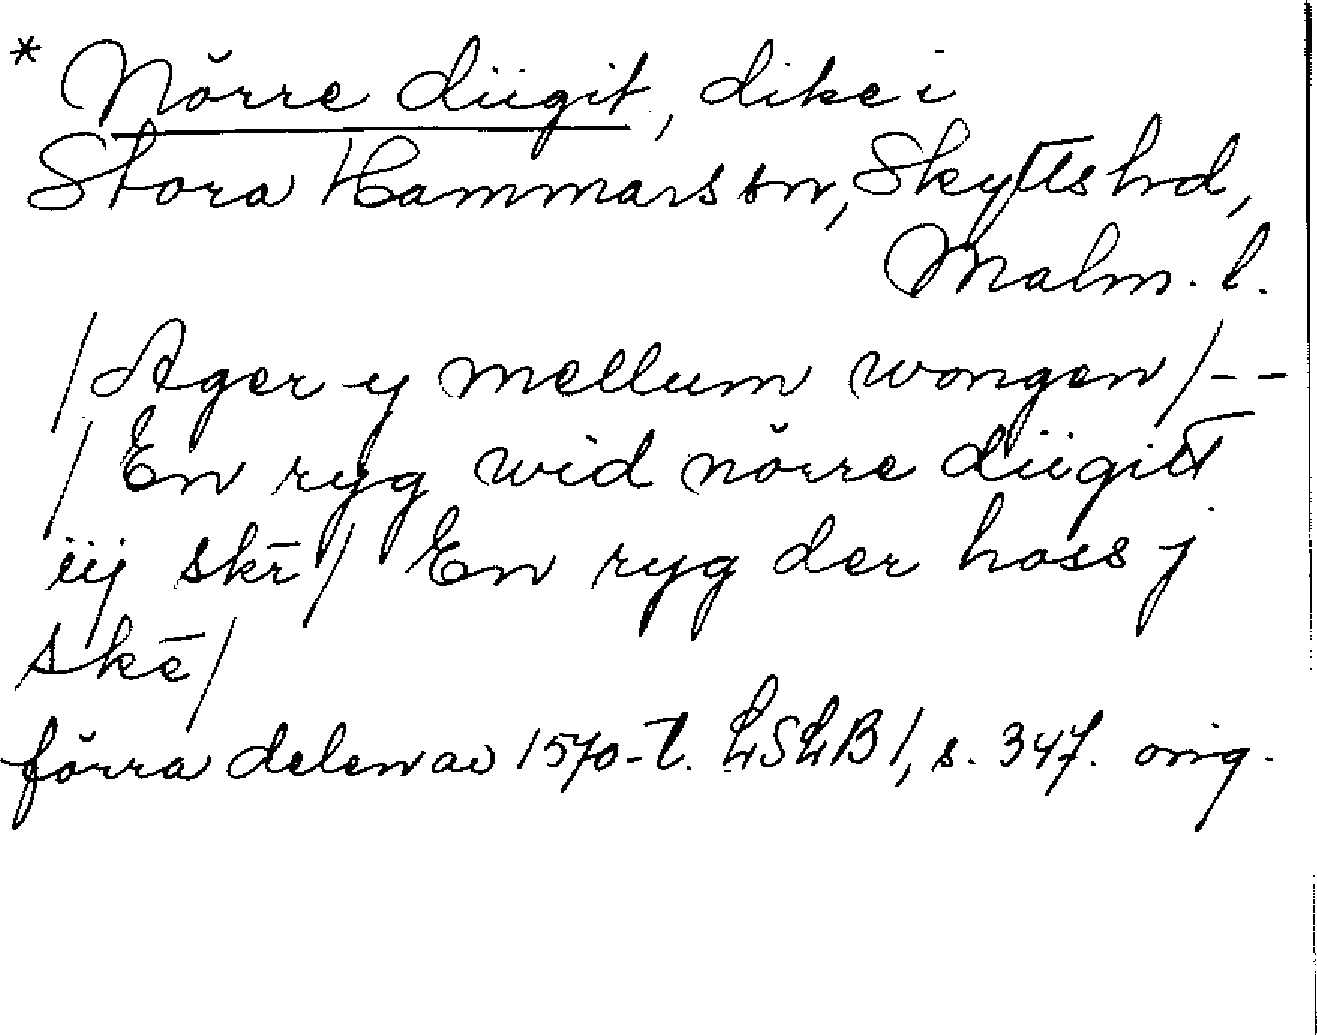 * Nörre diigit, dike i
Stora Hammars sn, Skytts hd,
Malm. l.
/Ager y mellum wongen/--
/En ryg wid nörre diigitt
iij skē/ En ryg der hoss j
skē/
förra delen av 1570-t. LSLB 1, s. 347. orig.